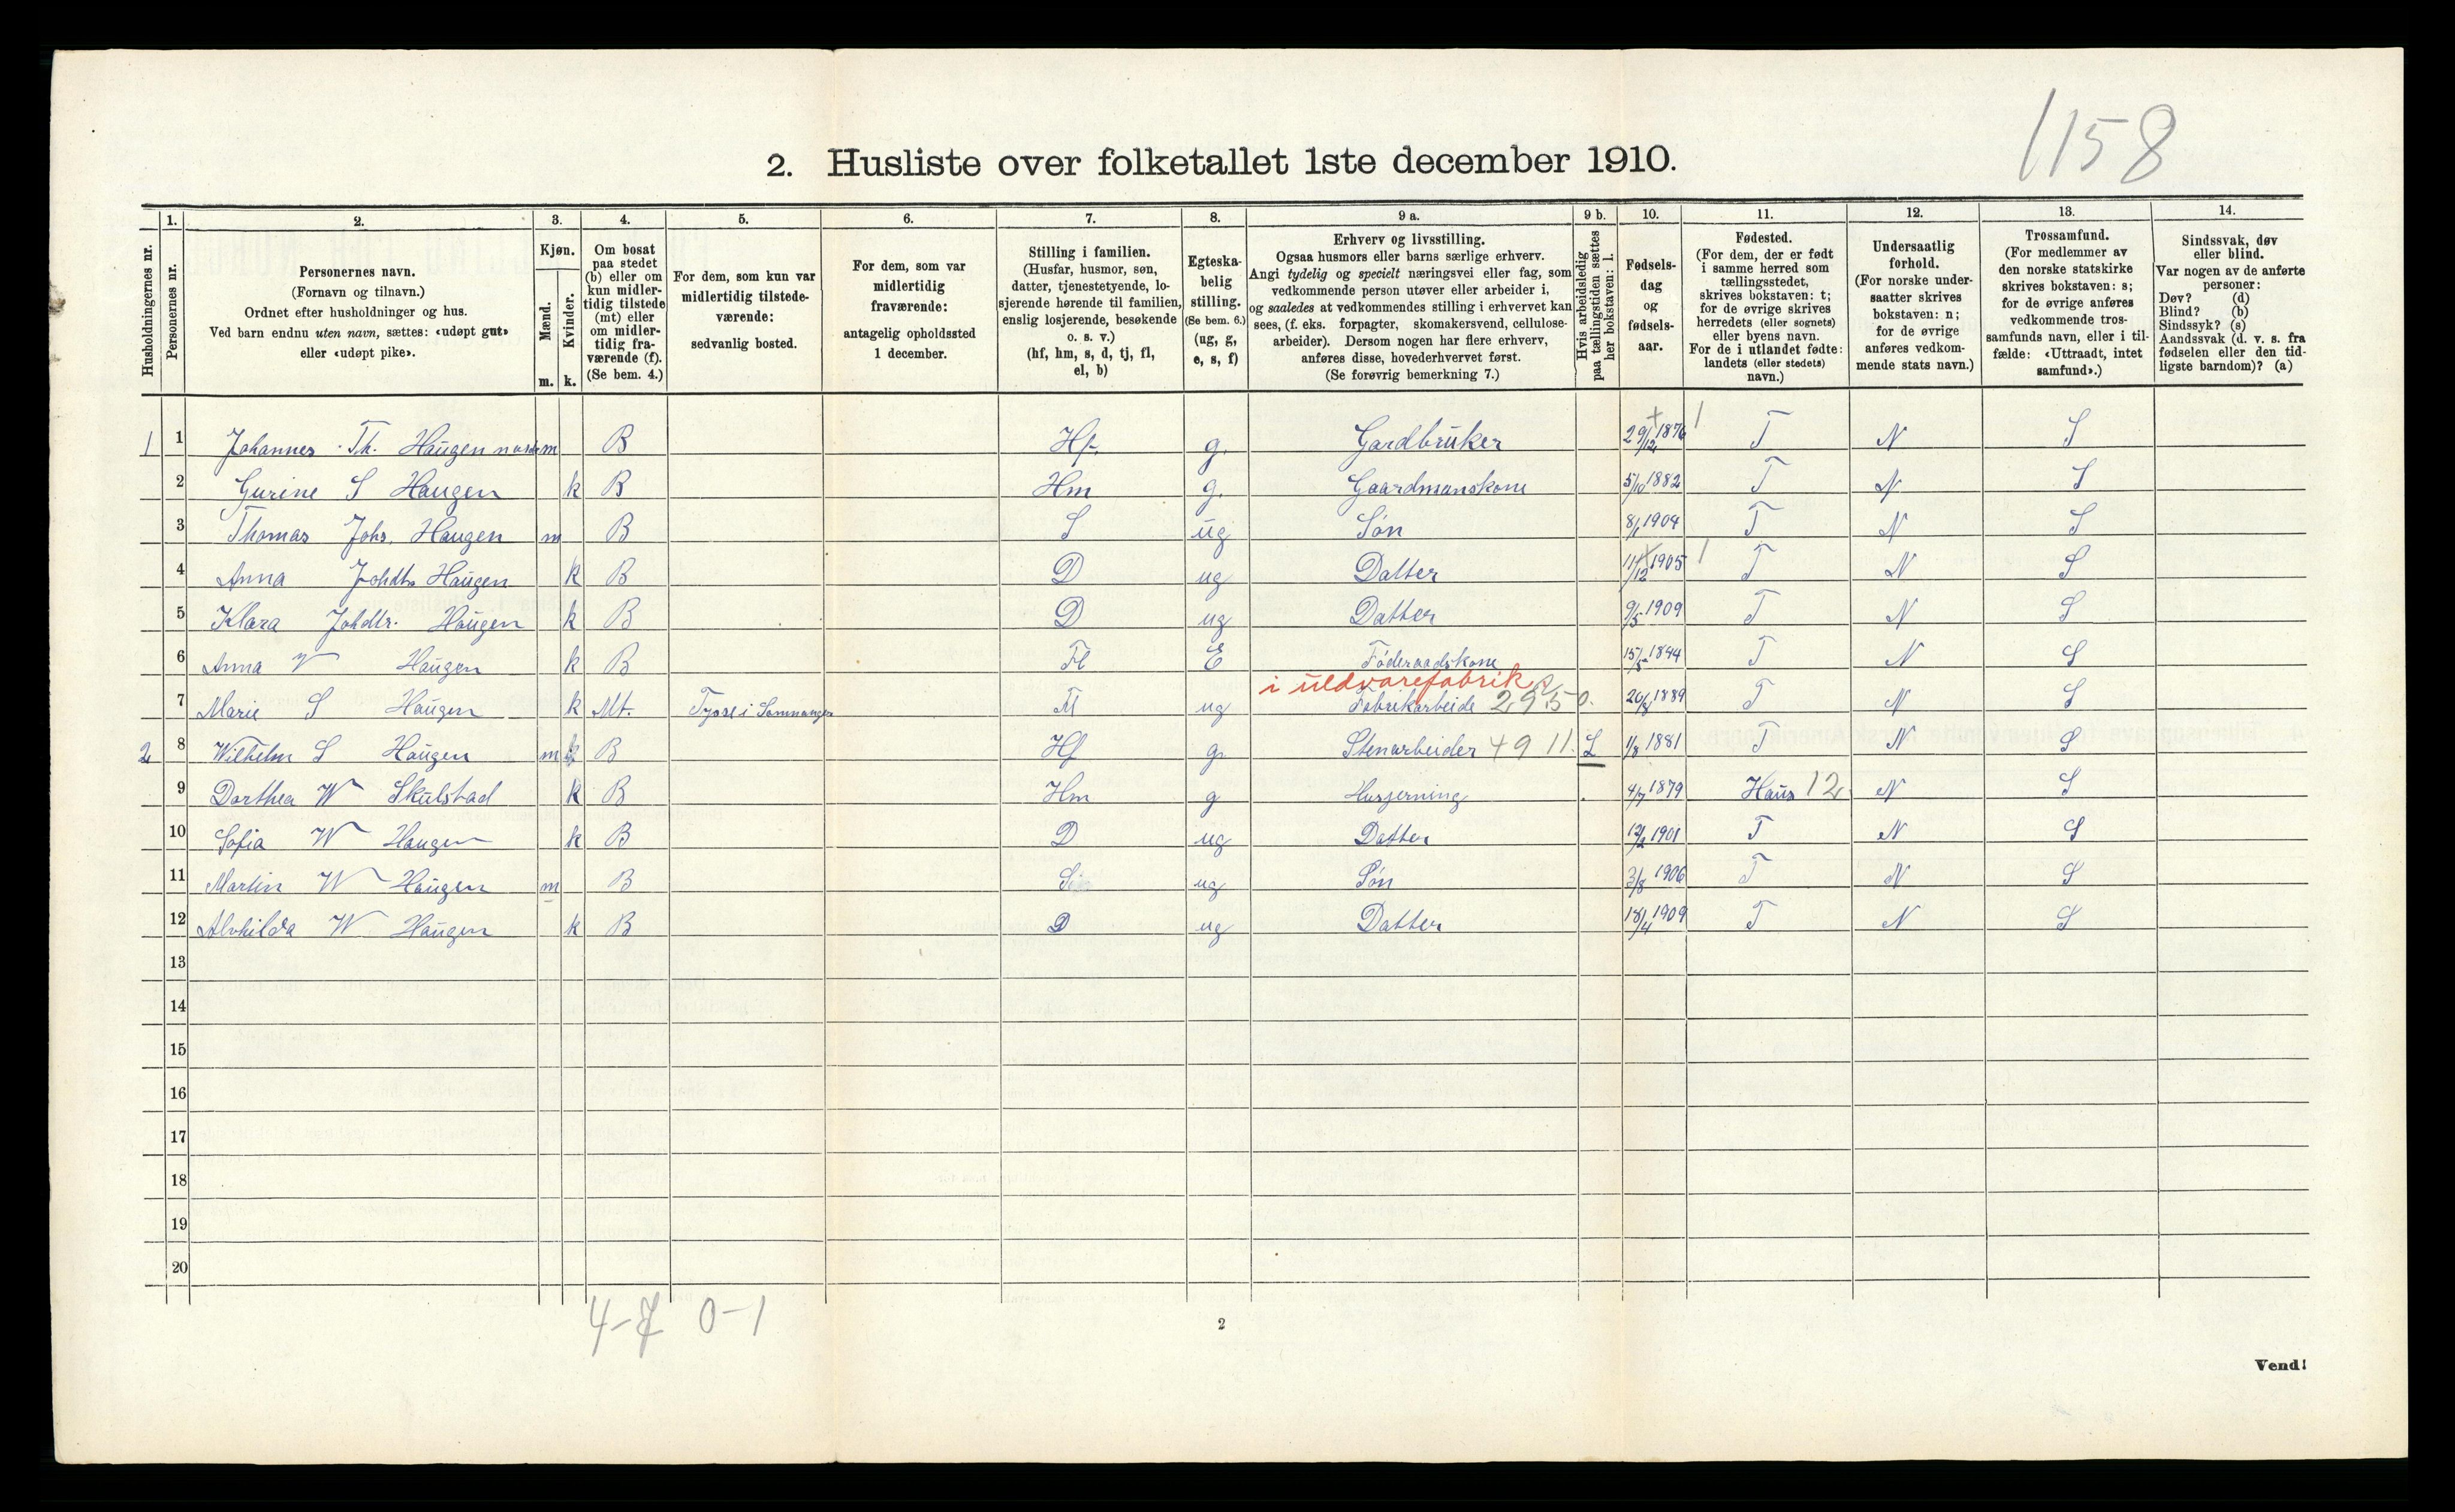 1158
2. Husliste over folketallet 1ste december 1910.
1. 2. 3. 4. 5. 6. 7. 8. 9 a. 9 b. 10. 11. 12. 13. 14.
Husholdningernes nr.
Personernes nr.
Personernes navn.
(Fornavn og tilnavn.)
Ordnet efter husholdninger og hus.
Ved barn endnu uten navn, sættes: «udøpt gut»
eller «udøpt pike».
Kjøn.
Mænd.
Kvinder.
m. k.
Om bosat
paa stedet
(b) eller om
kun midler-
tidig tilstede
(mt) eller
om midler-
tidig fra-
værende (f).
(Se bem. 4.)
For dem, som kun var
midlertidig tilstede-
værende:
sedvanlig bosted.
For dem, som var
midlertidig
fraværende:
antagelig opholdssted
1 december.
Stilling i familien.
(Husfar, husmor, søn,
datter, tjenestetyende, lo-
sjerende hørende til familien,
enslig losjerende, besøkende
o. s. v.)
(hf, hm, s, d, tj, fl,
el, b)
Egteska-
belig
stilling.
(Se bem. 6.)
(ug, g,
e, s, f)
Erhverv og livsstilling.
Ogsaa husmors eller barns særlige erhverv.
Angi tydelig og specielt næringsvei eller fag, som
vedkommende person utøver eller arbeider i,
og saaledes at vedkommendes stilling i erhvervet kan
sees, (f. eks. forpagter, skomakersvend, cellulose-
arbeider). Dersom nogen har flere erhverv,
anføres disse, hovederhvervet først.
(Se forøvrig bemerkning 7.)
Hvis arbeidsledig
paa tællingstiden sættes
her bokstaven: l.
Fødsels-
dag
og
fødsels-
aar.
Fødested.
(For dem, der er født
i samme herred som
tællingsstedet,
skrives bokstaven: t;
for de øvrige skrives
herredets (eller sognets)
eller byens navn.
For de i utlandet fødte:
landets (eller stedets)
navn.)
Undersaatlig
forhold.
(For norske under-
saatter skrives
bokstaven: n;
for de øvrige
anføres vedkom-
mende stats navn.)
Trossamfund.
(For medlemmer av
den norske statskirke
skrives bokstaven: s;
for de øvrige anføres
vedkommende tros-
samfunds navn, eller i til-
fælde: «Uttraadt, intet
samfund».)
Sindssvak, døv
eller blind.
Var nogen av de anførte
personer:
Døv? (d)
Blind? (b)
Sindssyk? (s)
Aandssvak (d. v. s. fra
fødselen eller den tid-
ligste barndom)? (a)
1 1 Johannes Th. Haugen m B Hf. g. Gardbruker 29/12 1876 T N S
2 Gurine S Haugen k B Hm g. Gaardmanskone 5/10 1882 T N S
3 Thomas Johs. Haugen m B S ug Søn 8/1 1904 T N S
4 Anna Johdtr Haugen k B D ug Datter 11/12 1905 T N S
5 Klara Johdtr. Haugen k B D ug Datter 9/5 1909 T N S
6 Anna Haugen k B Fl E Føderaadskone 1844 T N S
i uldvarefabrik
7 Marie S Haugen k Mt. Tysse i Samnanger ug Fabrikarbeide 1889 T N S
2 8 Wilhelm S Haugen m B Hf g. Stenarbeider 4911. L 1/8 1881 T N S
9 Dorthea W Skulstad k B Hm g Husgerning 4/7 1879 Haus 12 N S
10 Sofia W Haugen k B D ug Datter 12/2 1901 T N S
11 Martin W Haugen m B S ug Søn 3/8 1906 T N S
12 Alvhilda W Haugen k B D ug Datter 18/4 1909 T N S
13
14
15
16
17
18
19
20
4-7 0-1
2
Vend!